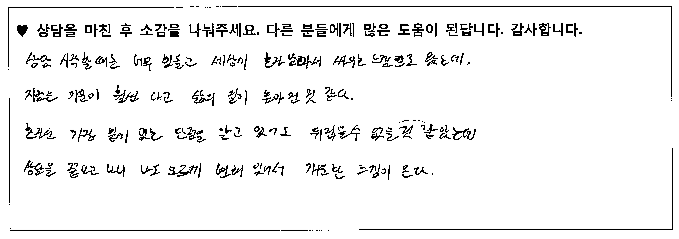 ♥ 상담을 마친 후 소감을 나눠주세요. 다른 분들에게 많은 도움이 된답니다. 감사합니다.
상담 시작할때는 너무 힘들고 세상에 혼자 남아서 싸우는 느낌으로 왔는데.
지금은 기운이 훨씬 나고 삶의 질이 높아진 것 같다.
혼자는 가장 문제 없는 알고 있어도 뒤집을수 없을 것 같았는데
상담을 끝내고 보니 나도 모르게 변해 있어서 개운한 느낌이 든다.